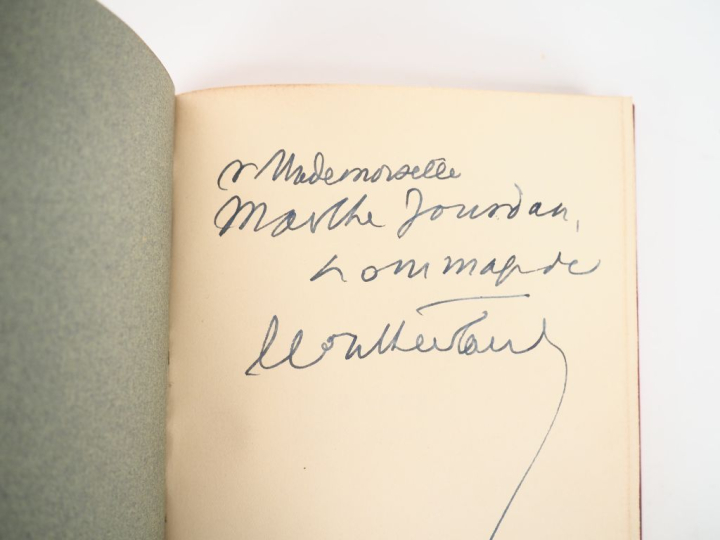 à Mademoiselle
Marthe Jourdan,
hommage de
Montherlant